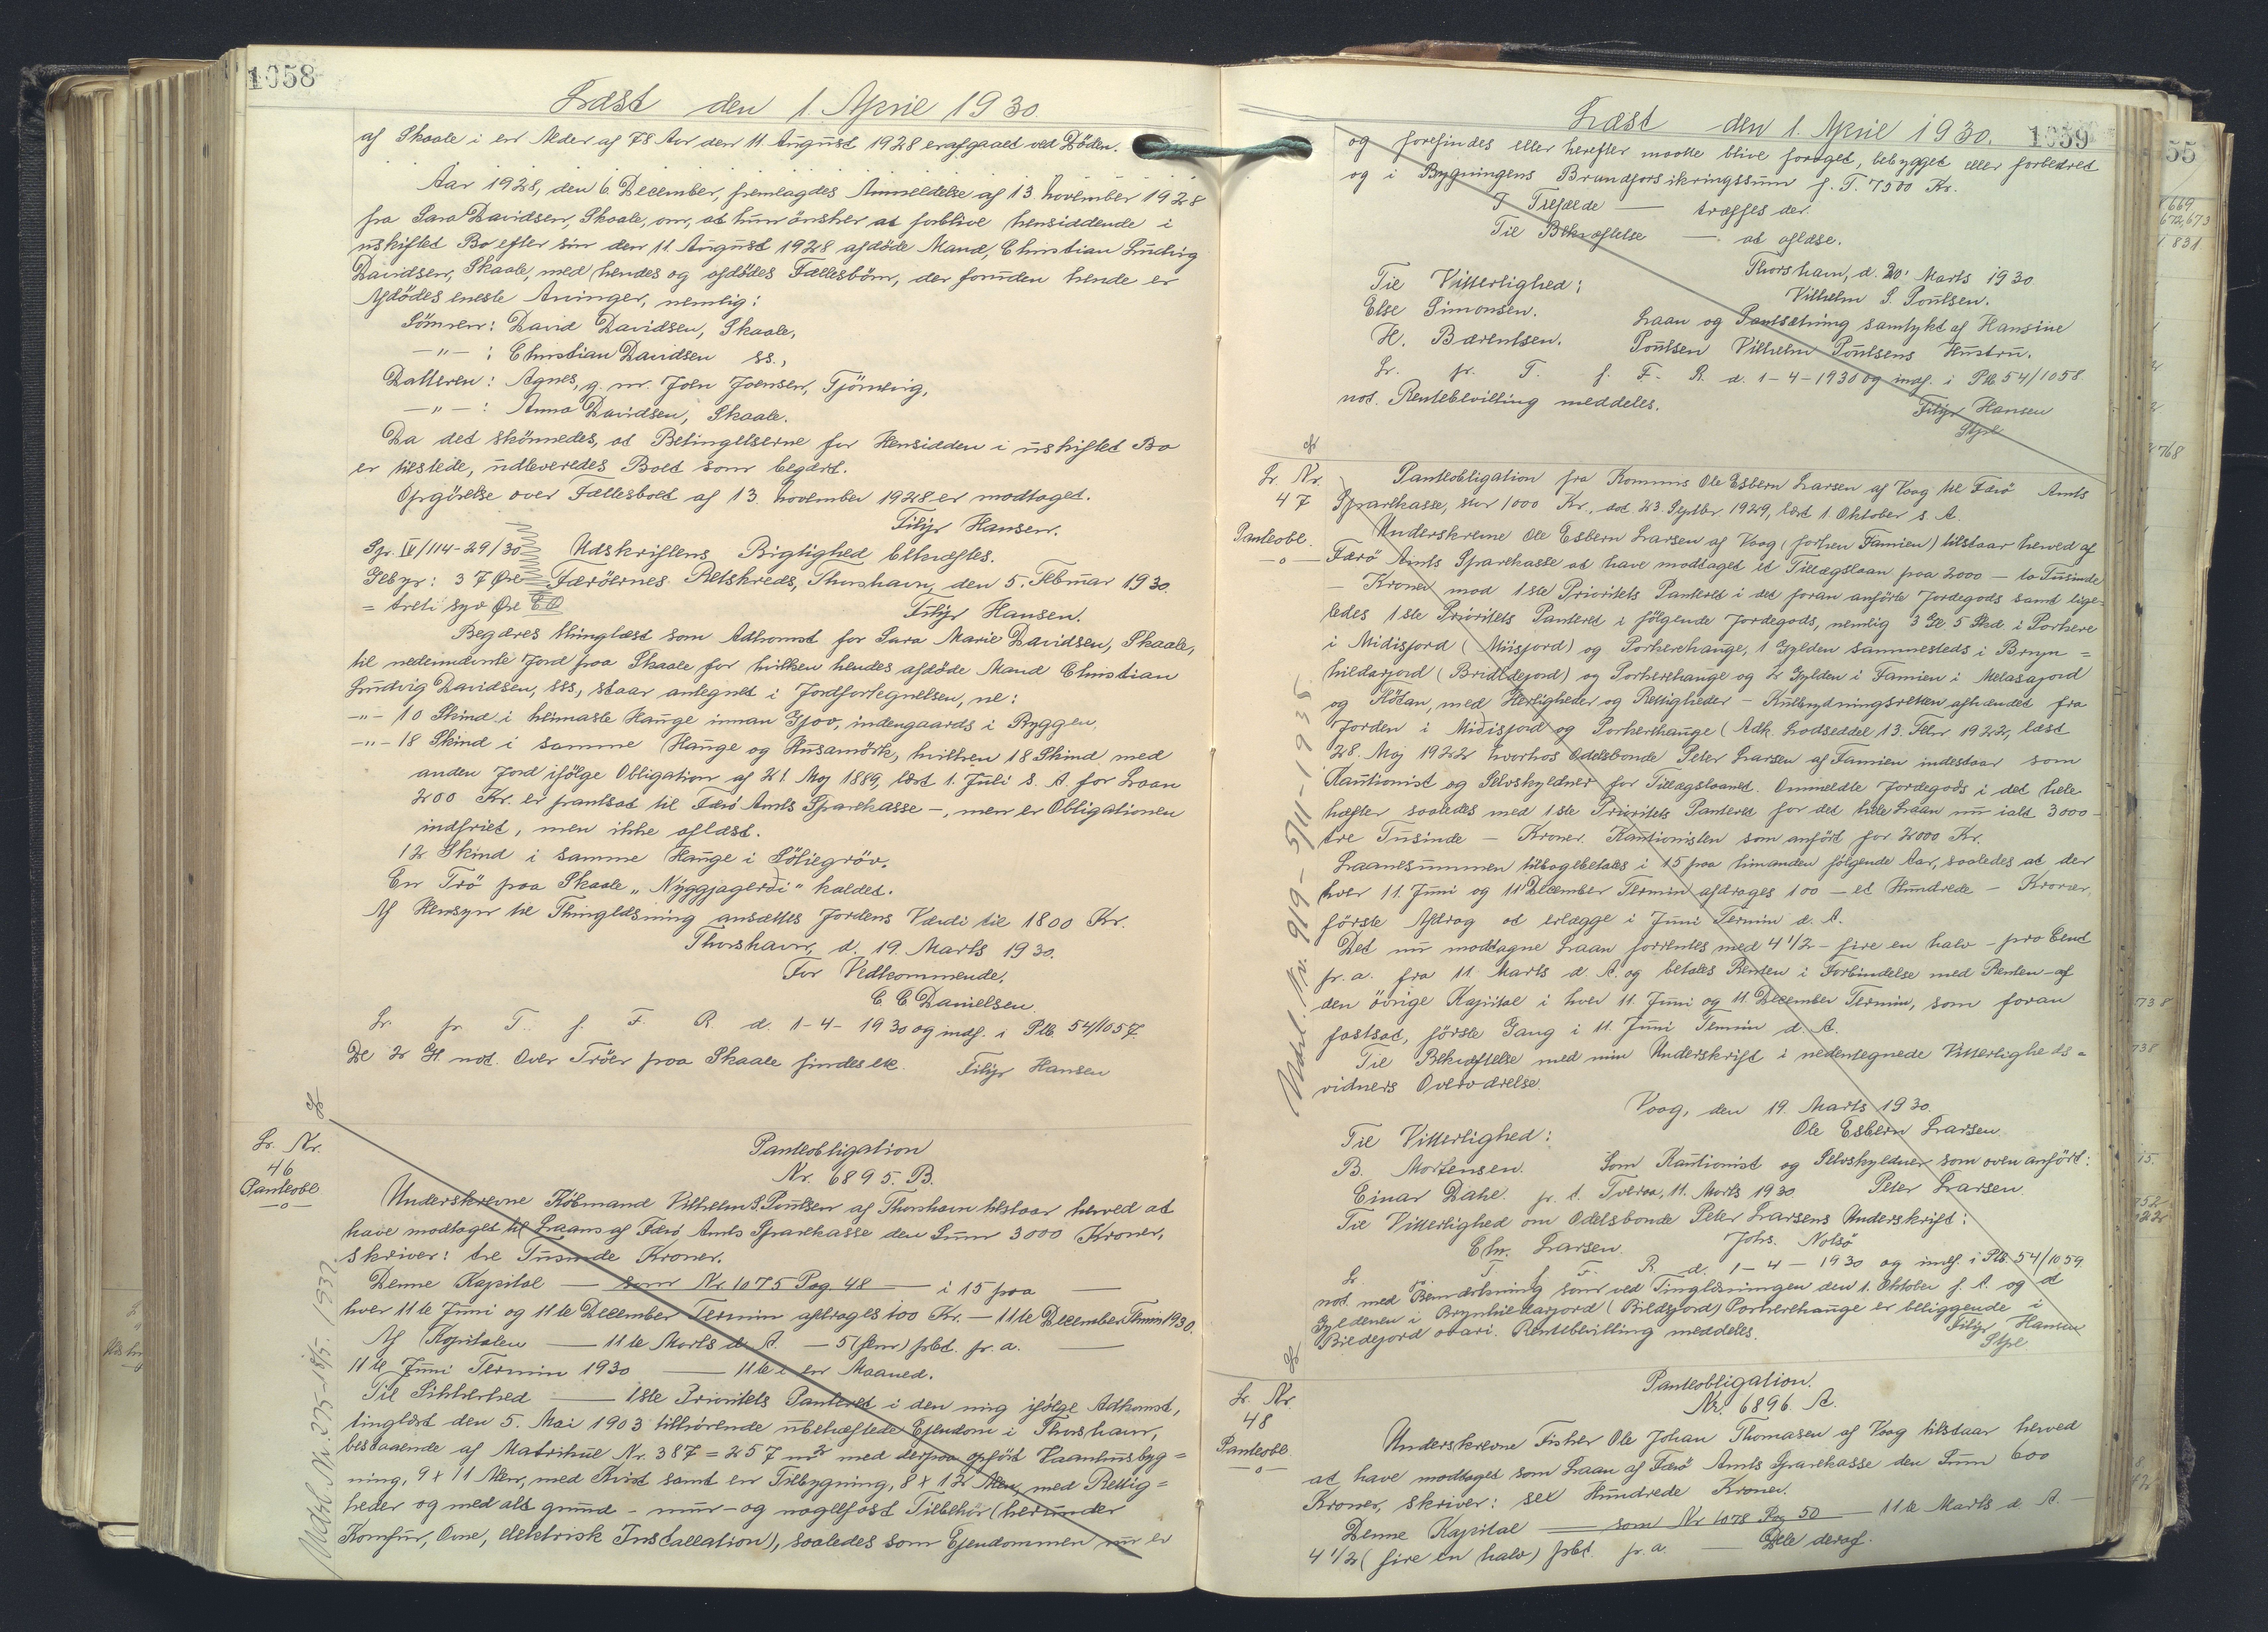 1058
Læst den 1. April 1930.
af Skaale i en Alder af 78 Aar den 11 August 1928 er afgaaet ved Döden.
Aar 1928, den 6. December, fremlagdes Anmeldelse af 13. November 1928
fra Sara Davidsen, Skaale, om, at hun önsker at forblive hensiddende i
uskiftet Bo efter sin den 11 August 1928 afdöde Mand, Christian Ludvig
Davidsen, Skaale, med hendes og afdödes Fællesbörn, der foruden hende er
Afdödes eneste Arvinger, nemlig:
Sönnen: David Davidsen, Skaale,
—"— : Christian Davidsen ss.,
Datteren: Agnes, g. m. Joen Joensen, Tjörnevig,
—"— : Anna Davidsen, Skaale.
Da det skönnedes, at Betingelserne for Hensidden i uskiftet Bo
er tilstede, udleveredes Boet som begært.
Opgörelse over Fællesboet af 13. November 1928 er modtaget.
Filip Hansen.
Spr. IV/114-29/30 Udskriftens Rigtighed bekræftes.
Gebyr: 37 Øre Færöernes Retskreds, Thorshavn, den 5. Februar 1930.
= treti syv Øre Filip Hansen.
Begæres thinglæst som Adkomst for Sara Marie Davidsen, Skaale,
til nedennævnte Jord paa Skaale for hvilken hendes afdöde Mand Christian
Ludvig Davidsen, sss, staar antegnet i Jordfortegnelsen, ne:
—"— 10 Skind i heimaste Hauge innan Gjov, indengaards i Ryggen,
—"— 18 Skind i samme Hauge og Husamörk, hvilken 18 Skind med
anden Jord ifölge Obligation af 21 Maj 1889, læst 1. Juli s. A for Laan
200 Kr. er pantsat til Færö Amts Sparekasse —, men er Obligationen
indfriet, men ikke aflæst.
12 Skind i samme Hauge i Söliegröv.
En Trö paa Skaale „Nýggjagerði" kaldet.
Af Hensyn til Thinglæsning ansættes Jordens Værdi til 1800 Kr.
Thorshavn, d. 19. Marts 1930.
For Vedkommende,
C C Danielsen.
Lr. pr. T. f. F. R. d. 1-4-1930 og indf. i Ptb. 54/1057.
De 2 Gl not. Over Tröer paa Skaale findes ik. Filip Hansen
Lr. Nr.
46
Panteobl
—o—
Panteobligation
Nr. 6895. B.
Underskrevne Købmand Vilhelm S. Poulsen af Thorshavn tilstaar herved at
have modtaget til Laans af Færö Amts Sparekasse den Sum 3000 Kroner,
skriver: tre Tusinde Kroner.
Denne Kapital — som Nr. 1075 Pag. 48 — i 15 paa —
hver 11te Juni og 11te December Termin afdrages 100 Kr. — 11te December Termin 1930.
Af Kapitalen — 11te Marts d. A. — 5 (fem) pCt. pr. a. —
11te Juni Termin 1930 — 11te i en Maaned.
Til Sikkerhed — 1ste Prioritets Panteret i den mig ifölge Adkomst,
tinglæst den 5. Mai 1903 tilhörende ubehæftede Ejendom i Thorshavn,
bestaaende af Matrikul Nr. 387 = 257 m² med derpaa opfört Vaaningsbyg=
ning, 9 x 11 Alen, med Kvist samt en Tilbygning, 8 x 12 Alen, med Rettig=
heder og med alt grund- mur- og nagelfast Tilbehör (herunder
Komfur, Ovne, elektrisk Installation), saaledes som Ejendommen nu er
Udsl. Nr. 225-18/5. 1932.
Læst den 1. April 1930. 1059
og forefindes eller herefter maatte blive foröget, bebygget eller forbedret
og i Bygningens Brandforsikringssum f. T. 7500 Kr.
I Tilfælde — træffes der.
Til Bekræftelse — at aflæse.
Thorshavn, d. 20. Marts 1930
Vilhelm S. Poulsen.
Til Vitterlighed:
Else Simonsen. Laan og Pantsætning samtykt af Hansine
H. Bærentsen. Poulsen Vilhelm Poulsens Hustru.
Lr. pr. T. f. F. R. d. 1-4-1930 og indf. i Ptb 54/1058.
not. Rentebevilling meddeles. Filip Hansen
Lr. Nr.
47
Panteobl.
—o—
Panteobligation fra Kommis Ole Esbern Larsen af Vaag til Færö Amts
Sparekasse, stor 1000 Kr., dat 23. Septbr. 1929, læst 1. Oktober s. A.
Underskrevne Ole Esbern Larsen af Vaag (forhen Famien) tilstaar herved af
Færö Amts Sparekasse at have modtaget et Tillægslaan paa 2000 — to Tusinde
— Kroner mod 1ste Prioritets Panteret i det foran anförte Jordegods samt lige-
ledes 1ste Prioritets Panteret i fölgende Jordegods, nemlig 3 Gl 5 Skd. i Porkere
i Midisfjord (Miisfjord) og Porkerehauge, 1 Gylden sammesteds i Bryn=
hildarfjord (Brildefjord) og Porkerehauge og 2 Gylden i Famien i Melasafjord
og Hötan, med Herligheder og Rettigheder — Kulbrydningsretten afhændet fra
Jorden i Miðisfjord og Porkerhauge (Adk. Lodseddel 13. Febr 1922, læst
28. Maj 1922 hvorhos Odelsbonde Peter Larsen af Famien indestaar som
Kautionist og Selvskyldner for Tillægslaanet. Ommeldte Jordegods i det hele
hæfter saaledes med 1ste Prioritets Panteret for det hele Laan nu ialt 3000 —
tre Tusinde — Kroner. Kautionisten som anfört for 2000 Kr.
Laanesummen tilbagebetales i 15 paa hinanden fölgende Aar, saaledes at der
hver 11. Juni og 11. December Termin afdrages 100 — et Hundrede — Kroner,
förste Afdrag at erlægge i Juni Termin d. A.
Det nu modtagne Laan forrentes med 4 1/2 — fire en halv — pro Cent
pr. a. fra 11. Marts d. A. og betales Renten i Forbindelse med Renten af
den övrige Kapital i hver 11. Juni og 11. December Termin, som foran
fastsat, förste Gang i 11. Juni Termin d. A.
Til Bekræftelse med min Underskrift i nedentegnede Vitterligheds=
vidners Overværelse.
Vaag, den 19. Marts 1930.
Ole Esbern Larsen.
Til Vitterlighed:
B. Mortensen. Som Kautionist og Selvskyldner som oven anfört:
Einar Dahl. p. t. Tveraa, 11. Marts 1930. Peter Larsen.
Til Vitterlighed om Odelsbonde Peter Larsens Underskrift:
Chr. Larsen. Johs. Nolsö
Lr. T. f. F. R. d. 1-4-1930 og indf. i Ptb. 54/1059.
not. med Bemærkning som ved Tinglæsningen den 1. Oktober f. A. og at
Gyldenen i Brynhildarfjord (Brildefjord) Porkerehauge er beliggende i
Rentebevilling meddeles. Filip Hansen
Udsl. Nr. 919-5/11-1938
Lr. Nr.
48
Panteobl.
—o—
Panteobligation.
Nr. 6896. A.
Underskrevne Fisker Ole Johan Thomasen af Vaag tilstaar herved
at have modtaget som Laan af Færö Amts Sparekasse den Sum 600
Kroner, skriver: sex Hundrede Kroner.
Denne Kapital — som Nr 1078 Pag 50 — 11te Marts d. A. —
4 1/2 (fire en halv) pCt. pr. a. — Dele deraf.
55
669
672,673
831
768
738
738
15.